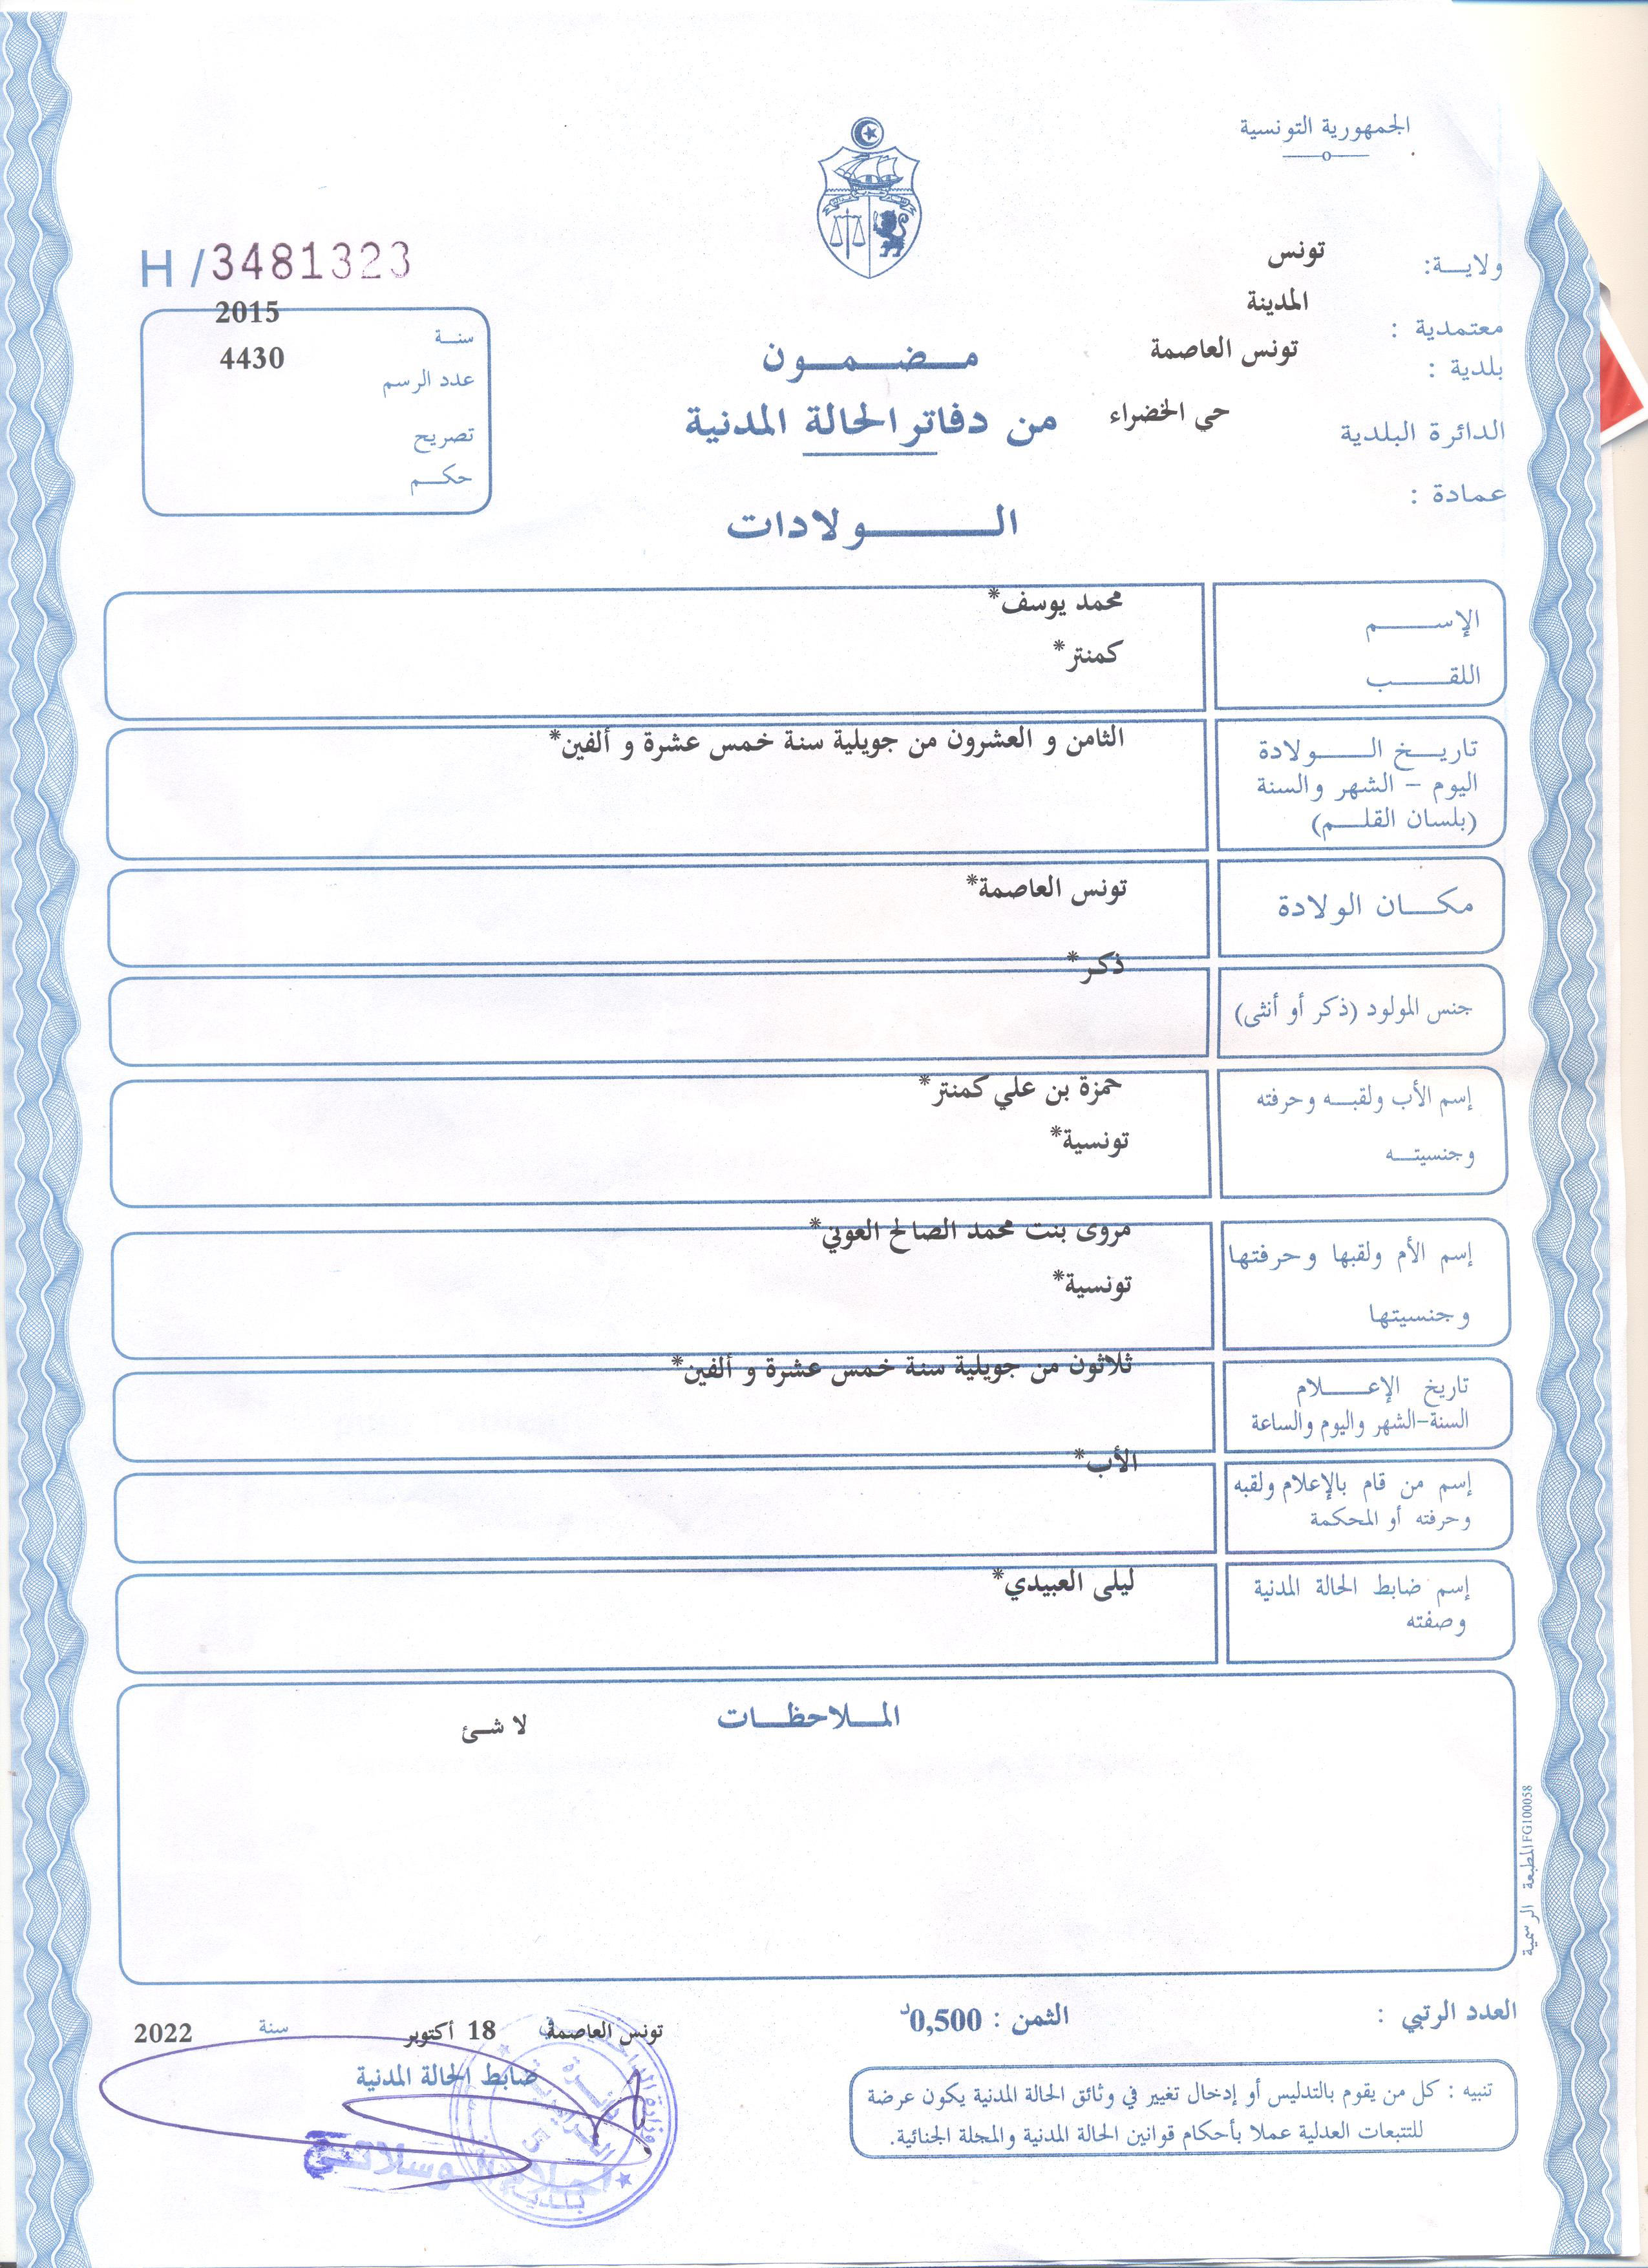 الجمهورية التونسية
ولاية: تونس
معتمدية : المدينة
بلدية : تونس العاصمة
الدائرة البلدية حي الخضراء
عمادة :
H/3481323
سنة 2015
عدد الرسم 4430
تصريح
حكم
مضمون
من دفاتر الحالة المدنية
الولادات
الإسم محمد يوسف*
اللقب كمنتر*
تاريخ الولادة
اليوم - الشهر والسنة
(بلسان القلم)
الثامن و العشرون من جويلية سنة خمس عشرة و ألفين*
مكان الولادة
تونس العاصمة*
جنس المولود (ذكر أو أنثى)
ذكر*
إسم الأب ولقبه وحرفته
وجنسيته
حمزة بن علي كمنتر*
تونسية*
إسم الأم ولقبها وحرفتها
وجنسيتها
مروى بنت محمد الصالح العوني*
تونسية*
تاريخ الإعلام
السنة-الشهر واليوم والساعة
ثلاثون من جويلية سنة خمس عشرة و ألفين*
إسم من قام بالإعلام ولقبه
وحرفته أو المحكمة
الأب*
إسم ضابط الحالة المدنية
وصفته
ليلى العبيدي*
الملاحظات
لا شئ
المطبعة الرسمية FG100058
العدد الرتبي :
الثمن : 0,500د
تونس العاصمة في 18 أكتوبر سنة 2022
ضابط الحالة المدنية
تنبيه : كل من يقوم بالتدليس أو إدخال تغيير في وثائق الحالة المدنية يكون عرضة
للتتبعات العدلية عملا بأحكام قوانين الحالة المدنية والمجلة الجنائية.